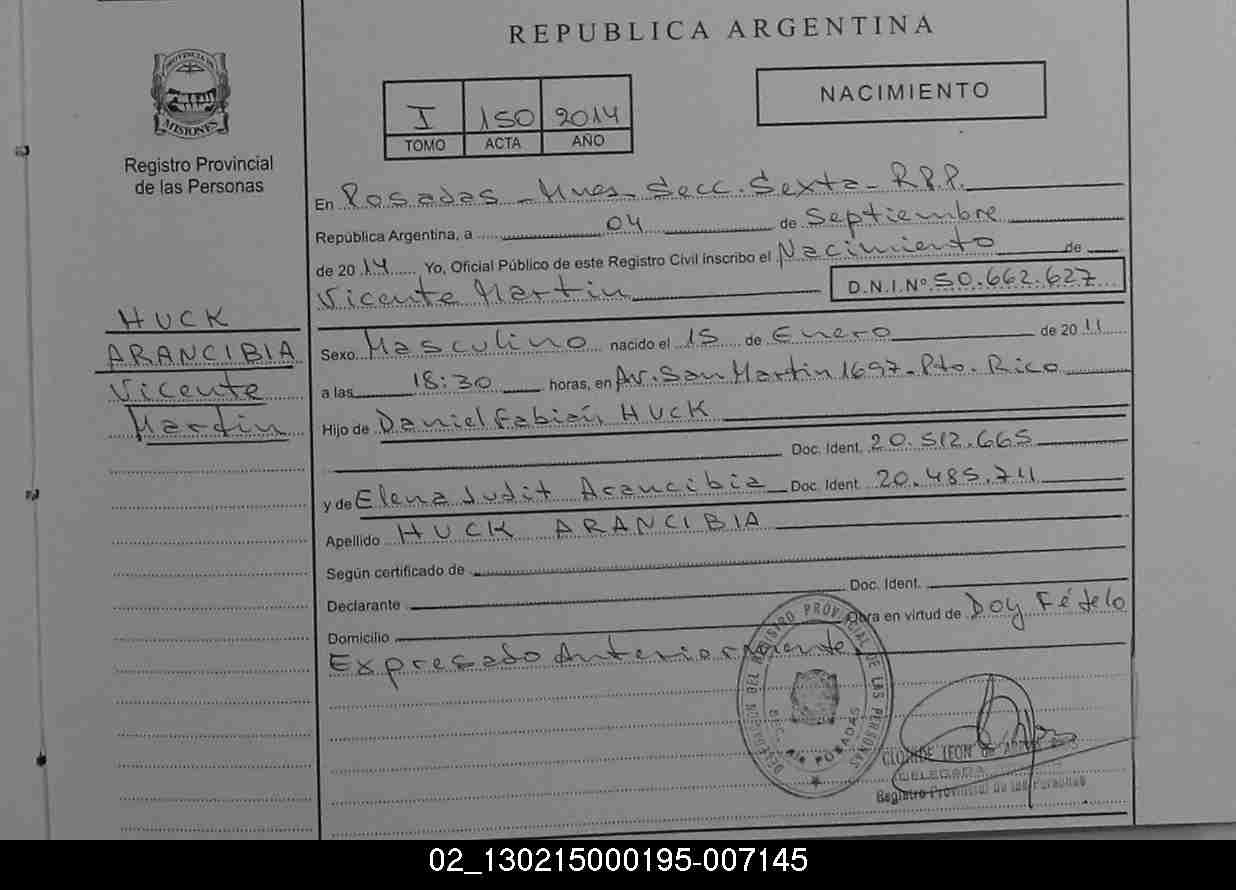 REPUBLICA ARGENTINA
PROVINCIA DE
MISIONES
Registro Provincial
de las Personas
I 150 2014
TOMO ACTA AÑO
NACIMIENTO
En Posadas - Mnes - Secc. Sexta - R.P.P.
República Argentina, a 04 de Septiembre
de 2014 Yo, Oficial Público de este Registro Civil inscribo el Nacimiento de
Vicente Martin D.N.I.Nº 50.662.627
HUCK
ARANCIBIA
Vicente
Martin
Sexo Masculino nacido el 15 de Enero de 2011
a las 18:30 horas, en Av. San Martin 1697 - Pto. Rico
Hijo de Daniel Fabián HUCK
Doc. Ident. 20.512.665
y de Elena Judit Arancibia Doc. Ident. 20.485.711
Apellido HUCK ARANCIBIA
Según certificado de
Declarante Doc. Ident.
Domicilio Obra en virtud de Doy Fé de lo
Expresado Anteriormente
DELEGACION DEL REGISTRO PROVINCIAL DE LAS PERSONAS
SEC. 6ta POSADAS
CLOTILDE LEON de
DELEGADA
Registro Provincial de las Personas
02_130215000195-007145